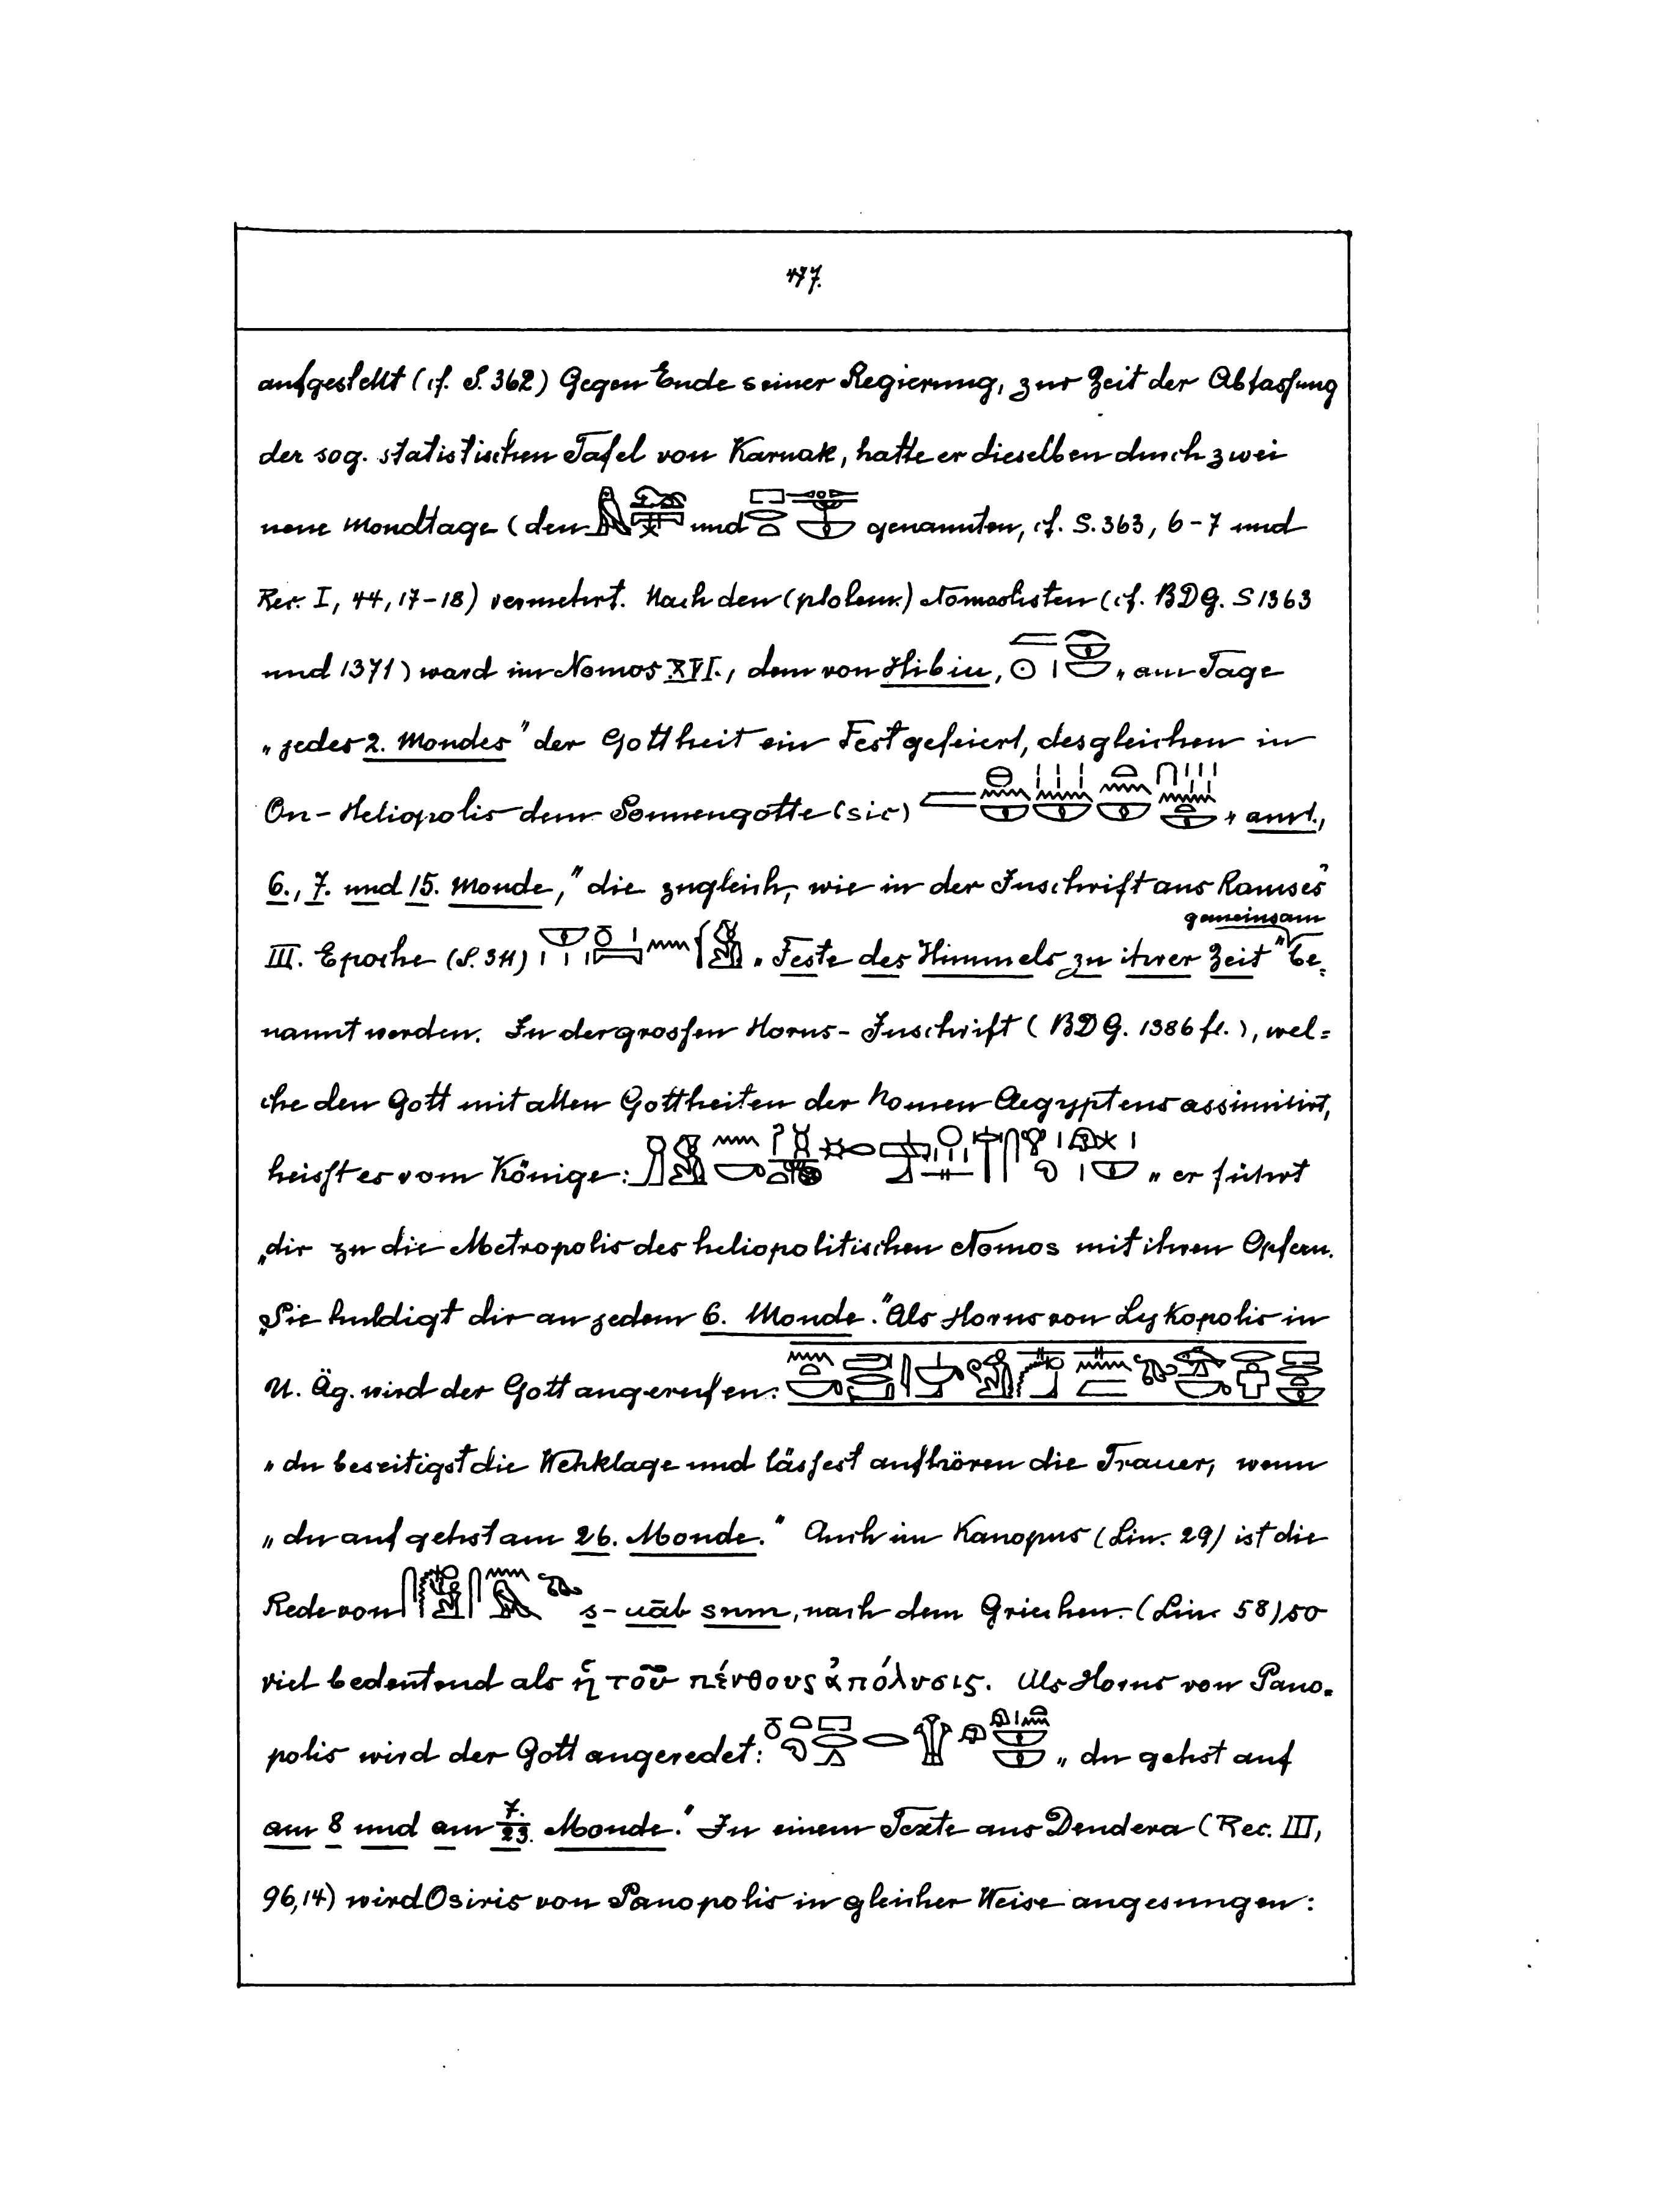 477.
aufgestellt (cf. S. 362) Gegen Ende seiner Regierung, zur Zeit der Abfassung
der sog. statistischen Tafel von Karnak, hatte er dieselben durch zwei
neue Mondtage (den und genannten, cf. S. 363, 6-7 und
Rec. I, 44, 17-18) vermehrt. Nach den (ptolem.) Nomoslisten (cf. BDG. S 1363
und 1371) ward im Nomos XVI., dem von Hibiu, „ am Tage
„ jedes 2. Mondes" der Gottheit ein Fest gefeiert, desgleichen in
On-Heliopolis dem Sonnengotte (sic) „ am 1.,
6., 7. und 15. Monde," die zugleich, wie in der Inschrift aus Ramses'
gemeinsam
III. Epoche (S. 311) „ Feste des Himmels zu ihrer Zeit" be=
nannt werden. In der grossen Horus-Inschrift (BDG. 1386 fl.), wel=
che den Gott mit allen Gottheiten der Nomen Aegyptens assimilirt,
heisst es vom Könige: „ er führt
„dir zu die Metropolis des heliopolitischen Nomos mit ihren Opfern.
„Sie huldigt dir an jedem 6. Monde." Als Horus von Lykopolis in
U. Äg. wird der Gott angerufen:
„ du beseitigst die Wehklage und lässest aufhören die Trauer, wenn
„ du aufgehst am 26. Monde." Auch im Kanopus (Lin. 29) ist die
Rede von s-uāb snm, nach dem Griechen (Lin. 58) so
viel bedeutend als ἡ τοῦ πένθους ἀπόλυσις. Als Horus von Pano=
polis wird der Gott angeredet: „ du gehst auf
am 8 und am 7./23. Monde." In einem Texte aus Dendera (Rec. III,
96,14) wird Osiris von Panopolis in gleicher Weise angesungen: